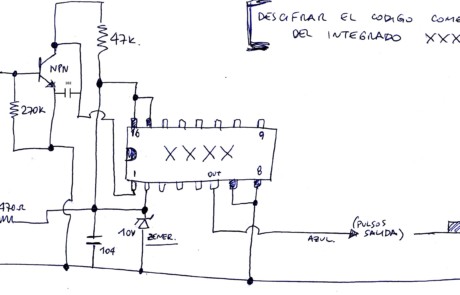 DESCIFRAR EL CODIGO
DEL INTEGRADO XXX
47K.
NPN
270K
16
9
XXXX
1
OUT
8
470Ω
10V
ZENER.
104
(PULSOS
SALIDA)
AZUL.